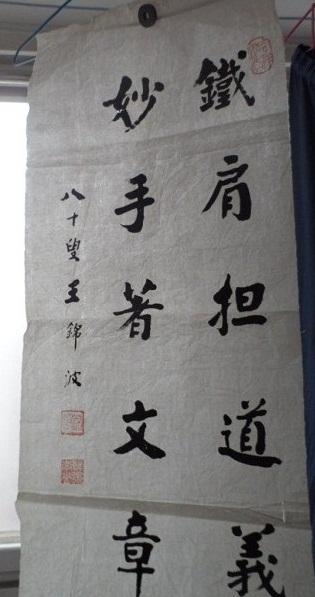 鐵肩担道義
妙手著文章
八十叟王錦波